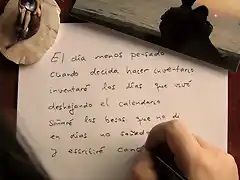 El día menos pensado
cuando decida hacer inventario
inventaré los días que viví
deshojando el calendario
Sumaré los besos que no di
en días no soleados
y escribiré